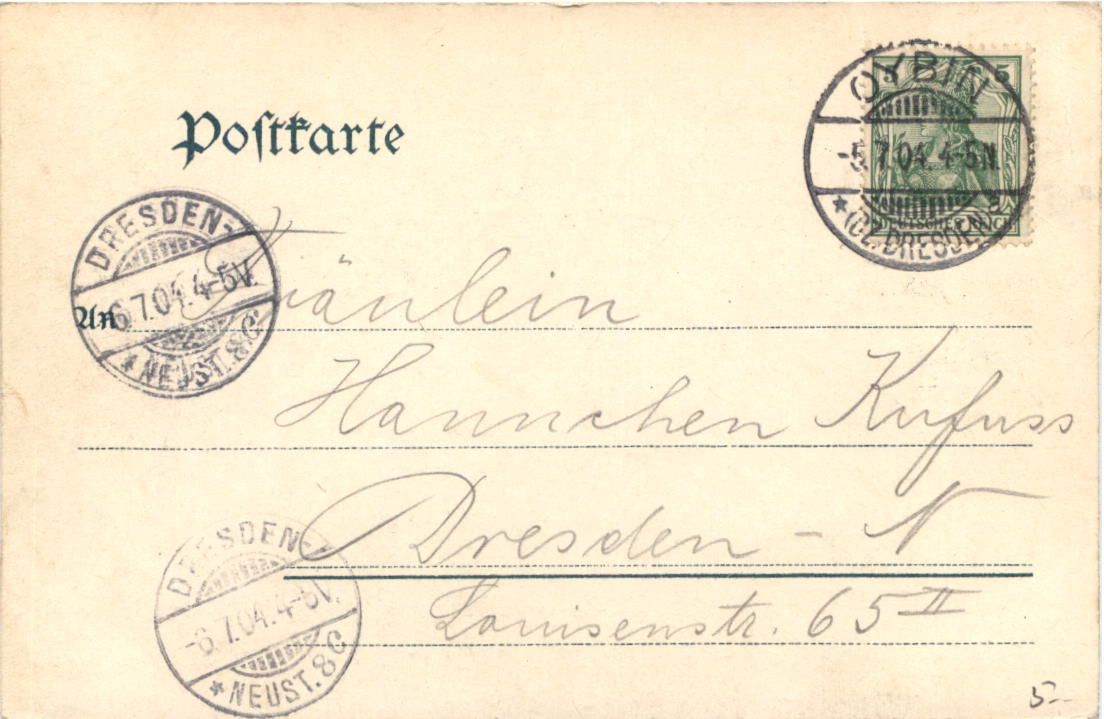 Postkarte
5 5
OYBIN
-5.7.04. 4-5N.
* (BZ. DRESDEN)
DEUTSCHES REICH
DRESDEN-
-6.7.04. 4-5V.
* NEUST. 8c
An
Fräulein
Hannchen Kufuss
Dresden - N
Louisenstr. 65 II
DRESDEN-
-6.7.04. 4-5V.
* NEUST. 8c
5.-